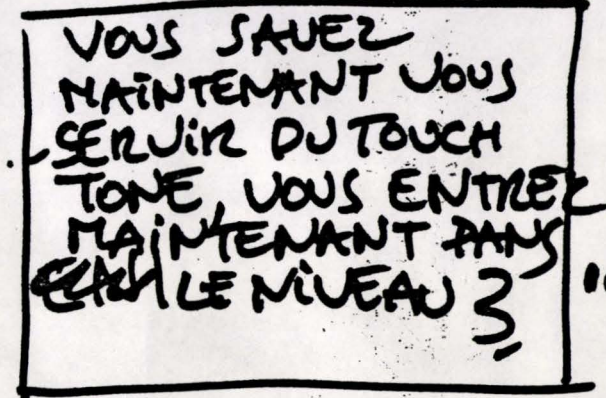 VOUS SAVEZ
MAINTENANT VOUS
SERVIR DU TOUCH
TONE, VOUS ENTREZ
MAINTENANT DANS
LE NIVEAU 3